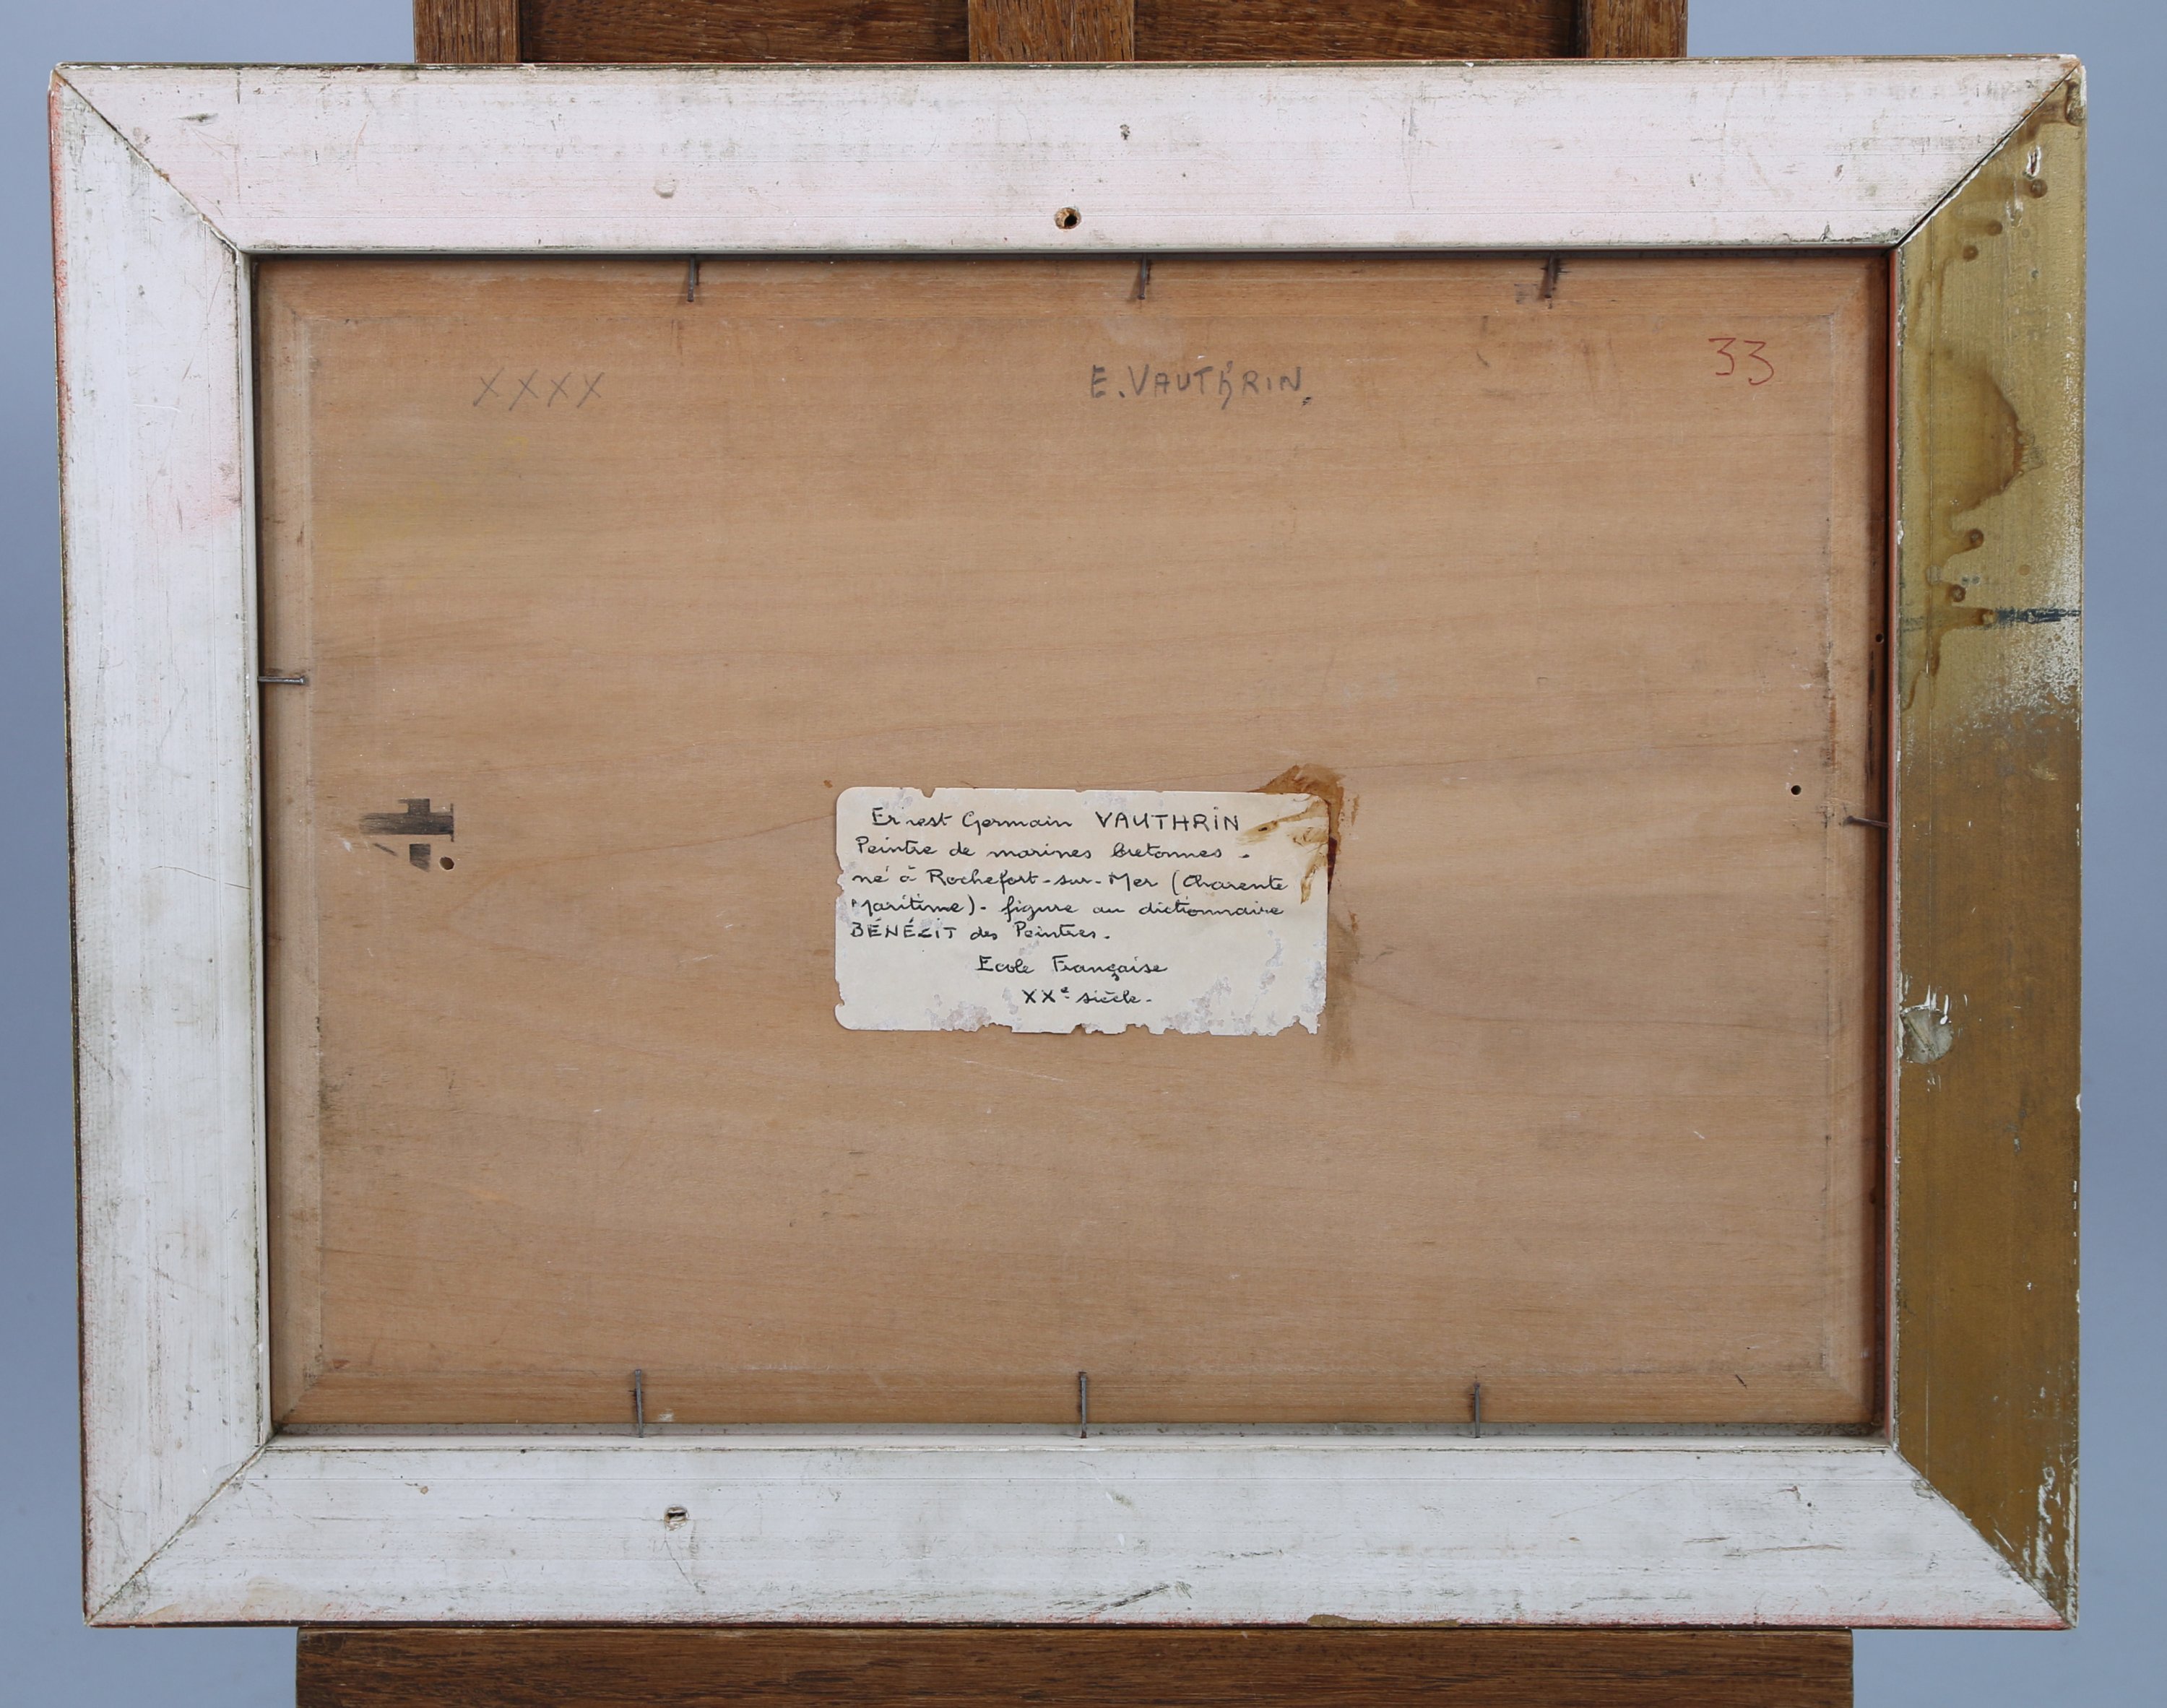 XXXX
E. VAUTHRIN.
33
4.
Ernest Germain VAUTHRIN
Peintre de marines bretonnes -
né à Rochefort-sur-Mer (Charente
Maritime) - figure au dictionnaire
BÉNÉZIT des Peintres.
Ecole Française
XXe siècle.